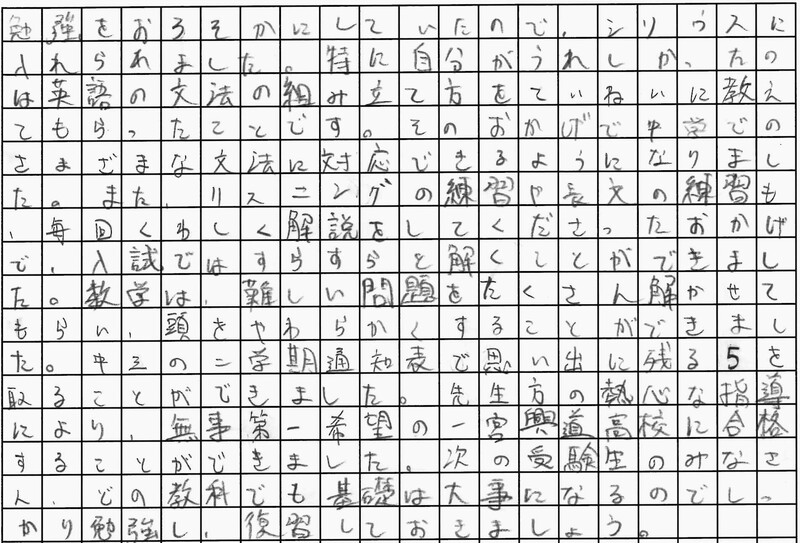 勉強をおろそかにしていたので、シリウスに
入れられました。特に自分がうれしかったの
は英語の文法の組み立て方をていねいに教え
てもらったてとです。そのおかげで中学での
さまざまな文法に対応できるようになりまし
た。また、リスニングの練習や長文の練習も
、毎回くわしく解説をしてくださったおかげ
で、入試ではすらすらと解くことができまし
た。教学は、難しい問題をたくさん解かせて
もらい、頭をやわらかくすることができまし
た。中三の二学期通知表で思い出に残る5を
取ることができました。先生方の熱心な指導
により、無事第一希望の一宮興道高校に合格
することができました。次の受験生のみなさ
ん、どの教科でも基礎は大事になるのでしっ
かり勉強し、復習しておきましょう。